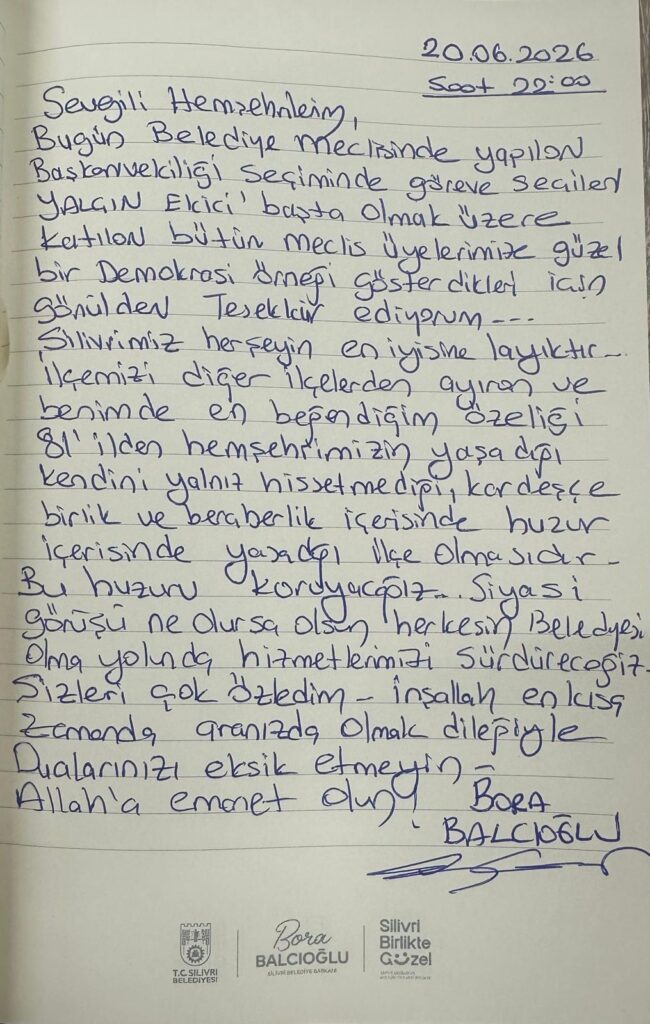 20.06.2026
Saat 22:00
Sevgili Hemşehrilerim,
Bugün Belediye Meclisinde yapılan
Başkanvekilliği seçiminde göreve seçilen
YALÇIN Ekici' başta olmak üzere
katılan bütün meclis üyelerimize güzel
bir Demokrasi örneği gösterdikleri için
gönülden Teşekkür ediyorum---
Silivrimiz herşeyin en iyisine layıktır--
ilçemizi diğer ilçelerden ayıran ve
benimde en beğendiğim özeliği
81'ilden hemşehrimizin yaşadığı
kendini yalnız hissetmediği, kardeşçe
birlik ve beraberlik içerisinde huzur
içerisinde yaşadığı ilçe olmasıdır-
Bu huzuru koruyacağız... Siyasi
görüşü ne olursa olsun herkesin Belediyesi
olma yolunda hizmetlerimizi sürdüreceğiz-
Sizleri çok özledim - inşallah en kısa
zamanda aranızda olmak dileğiyle
Dualarınızı eksik etmeyin -
Allah'a emanet olun! BORA
BALCIOĞLU
T.C. SİLİVRİ
BELEDİYESİ
Bora
BALCIOĞLU
SİLİVRİ BELEDİYE BAŞKANI
Silivri
Birlikte
Güzel